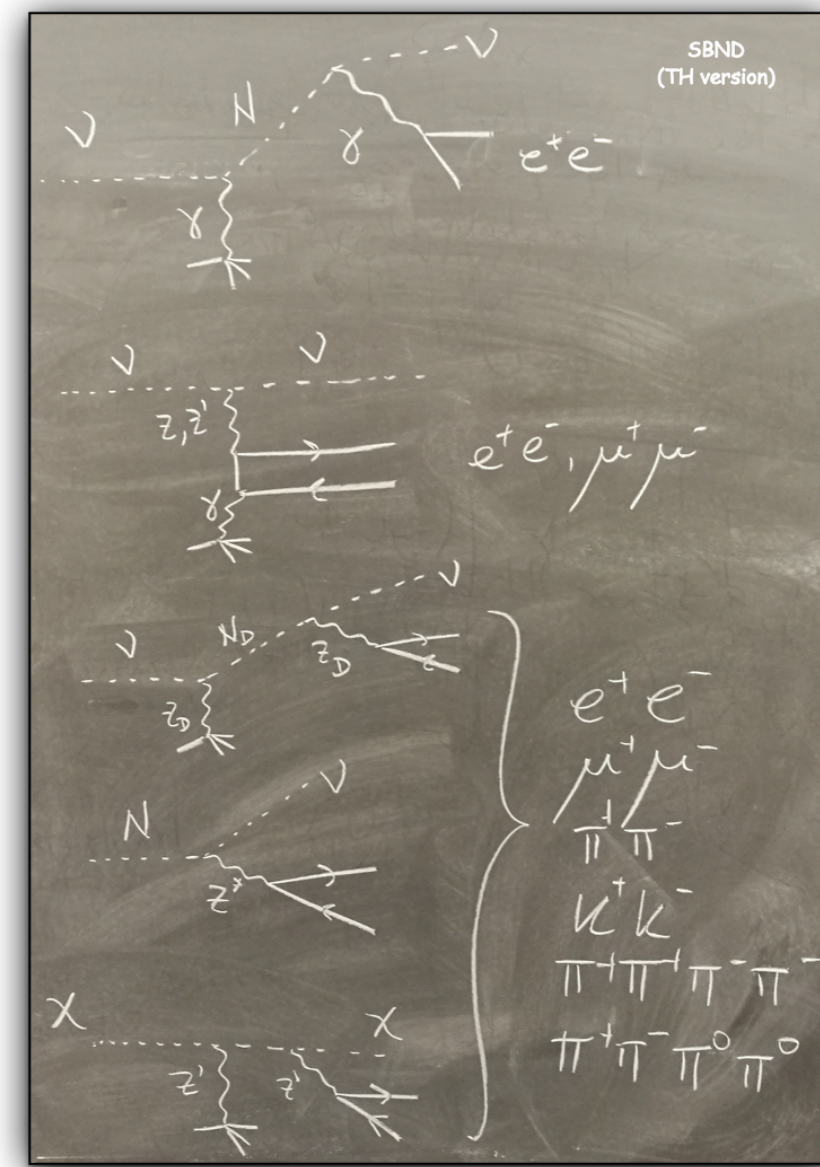 SBND
(TH version)
ν
N
ν
γ
γ
e⁺e⁻
ν
ν
Z, Z'
γ
e⁺e⁻, μ⁺μ⁻
ν
N_D
ν
Z_D
Z_D
N
ν
Z*
χ
χ
Z'
Z'
e⁺ e⁻
μ⁺ μ⁻
π⁺ π⁻
K⁺ K⁻
π⁺ π⁺ π⁻ π⁻
π⁺ π⁻ π⁰ π⁰